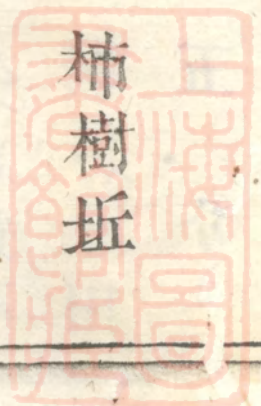 柿樹坵
上海圖
書館藏